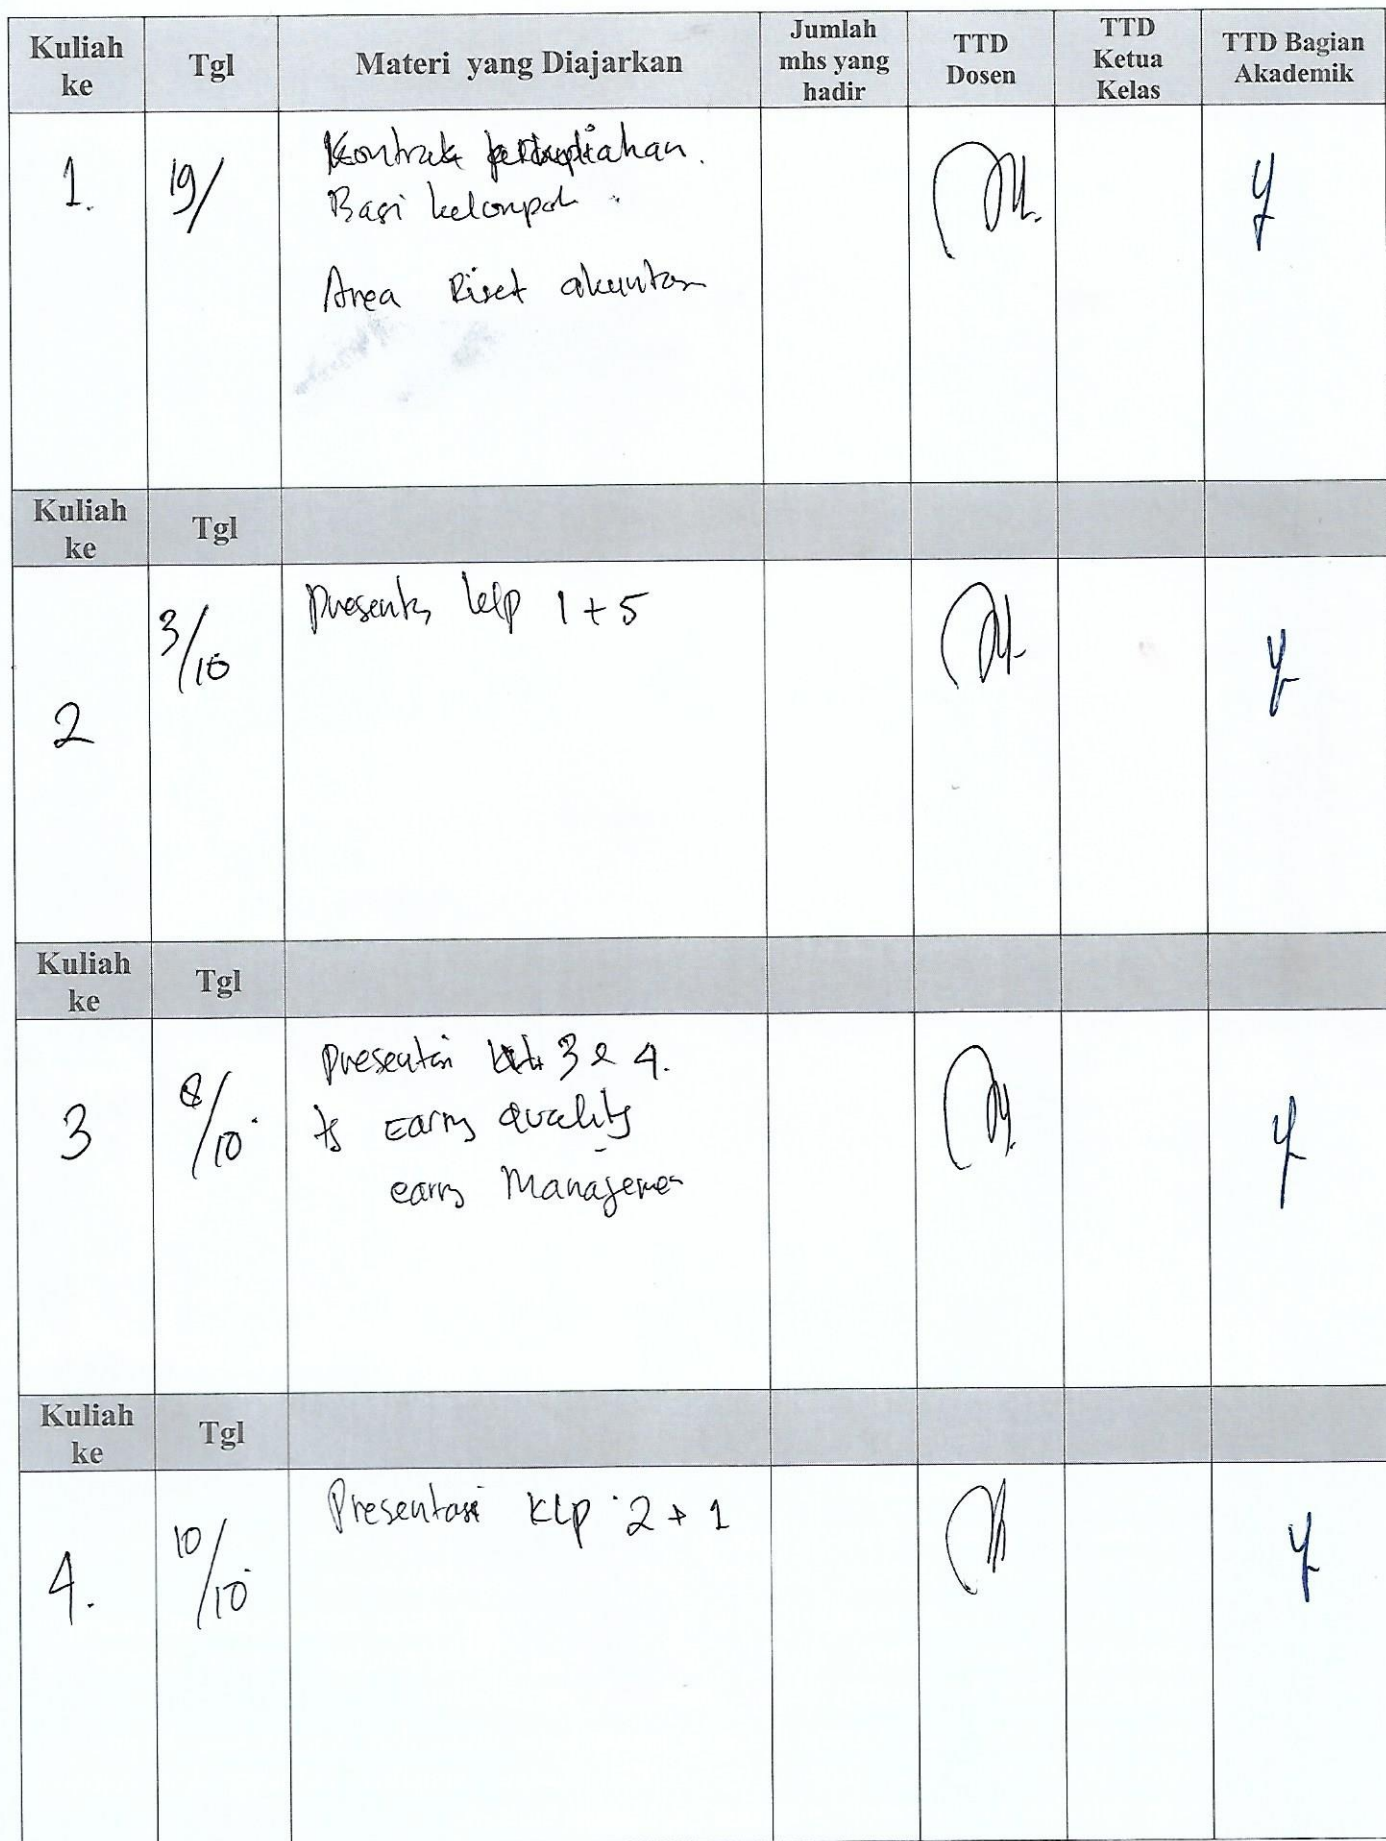 Kuliah ke Tgl Materi yang Diajarkan Jumlah mhs yang hadir TTD Dosen TTD Ketua Kelas TTD Bagian Akademik
1. 19/ Kontrak perkuliahan.
Bagi kelompok.
Area Riset akuntan
Kuliah ke Tgl
2 3/10 klp 1 + 5
Kuliah ke Tgl
3 8/10. 3 & 4.
quality
Kuliah ke Tgl
4. 10/10 Presentasi Klp 2 + 1